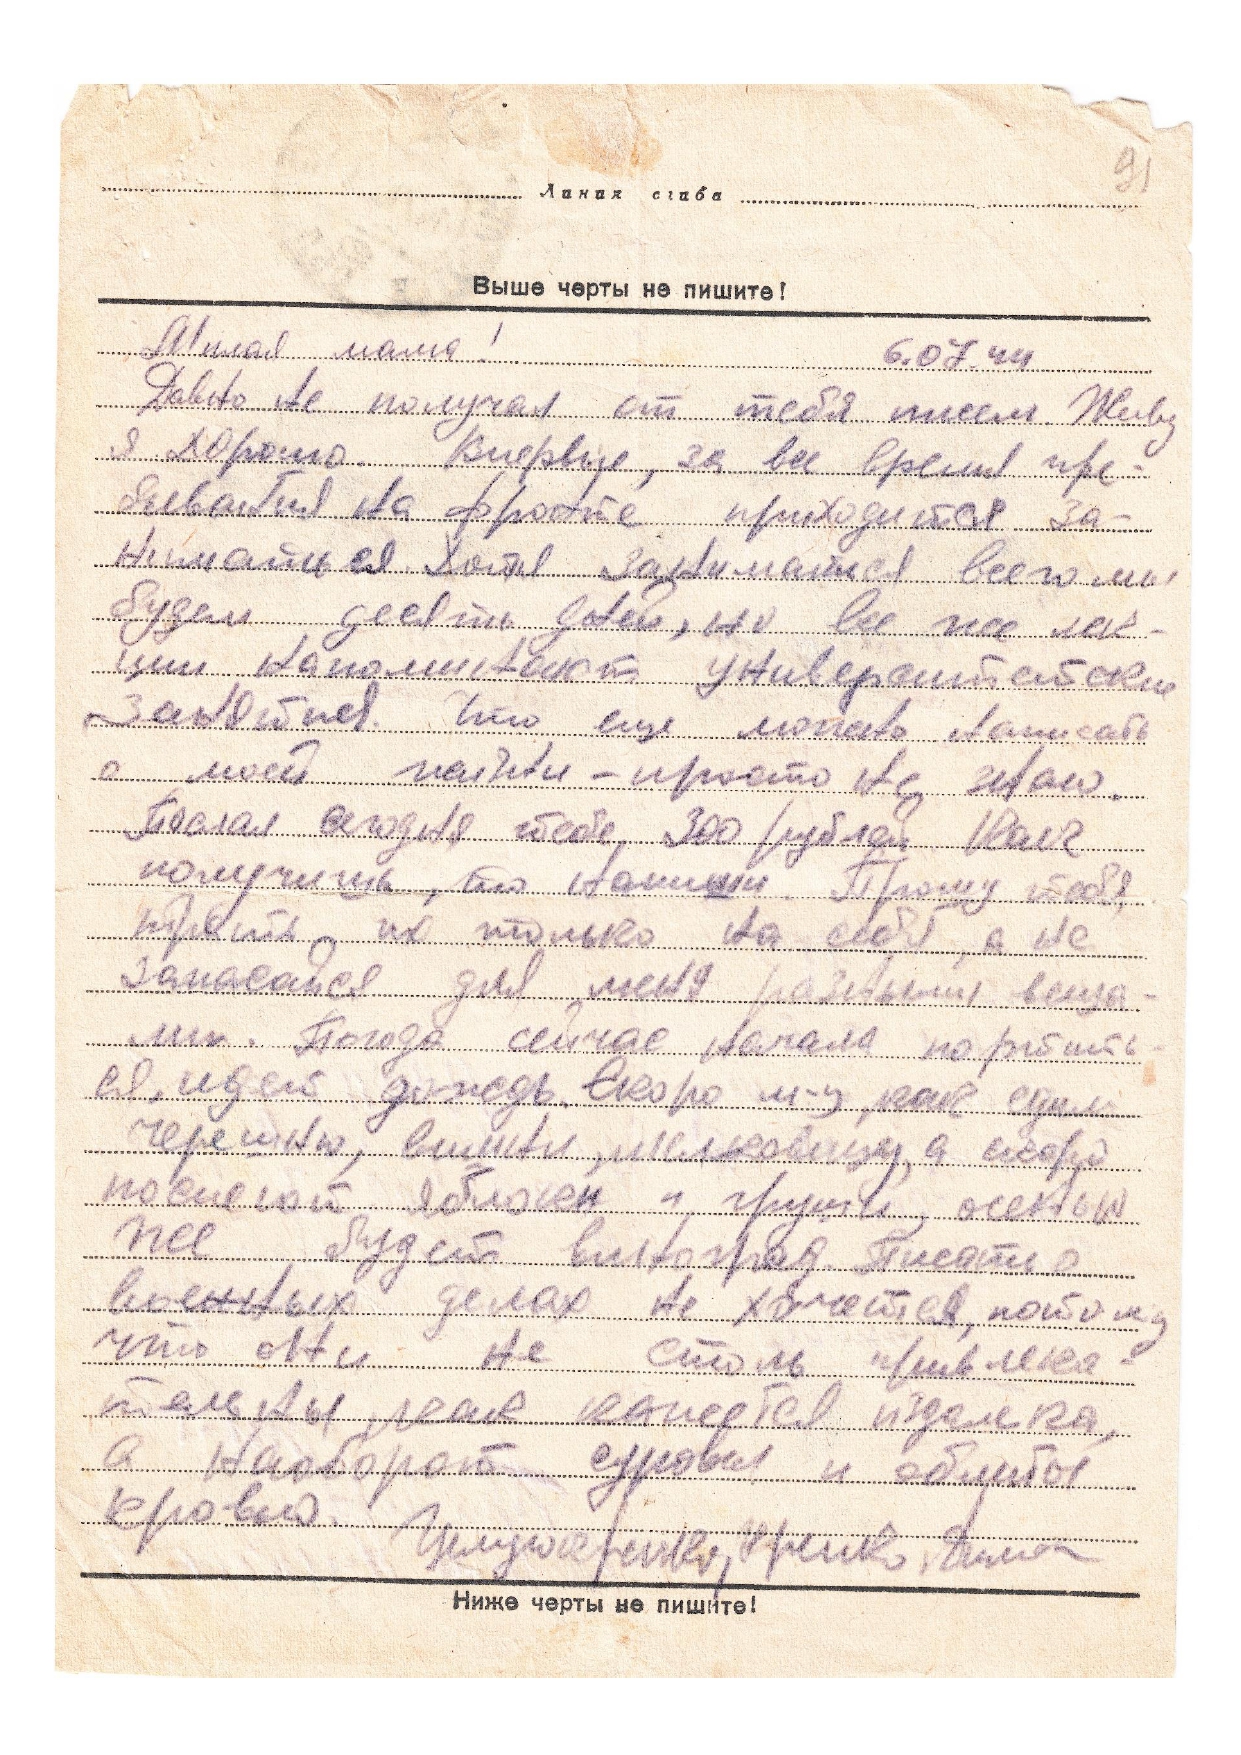 91
Линия сгиба
Выше черты не пишите!
Милая мама! 6.07.44
Давно не получал от тебя писем. Живу
я хорошо. Впервые, за все время пре-
бывания на фронте приходится за-
ниматься. Хотя заниматься всего мы
будем десять дней, но все же лек-
ции напоминают университетские
занятия. Что еще можно написать
о моей жизни – просто не знаю.
Послал сегодня тебе 300 рублей. Как
получишь, то напиши. Прошу тебя,
трать их только на себя, а не
запасайся для меня разными веща-
ми. Погода сейчас начала портить-
ся, идет дождь. Скоро м-ц, как едим
черешню, вишни, шелковицу, а скоро
поспеют яблоки и груши, осенью
же будет виноград. Писать о
военных делах не хочется, потому
что они не столь привлека-
тельны, как кажется издалека,
а наоборот суровы и облиты
кровью.
Целую крепко, крепко. Дима
Ниже черты не пишите!